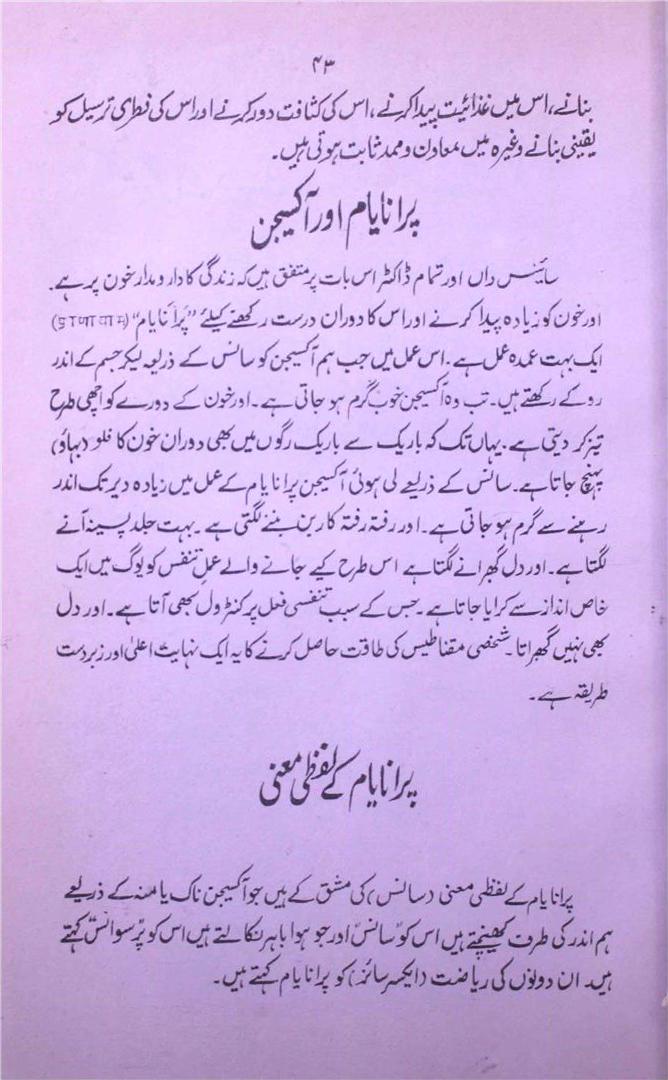 ۴۳
بنانے، اس میں غذائیت پیدا کرنے، اس کی کثافت دور کرنے اور اس کی فطری ترسیل کو
یقینی بنانے وغیرہ میں معاون و ممد ثابت ہوتی ہیں۔
پرانایام اور آکسیجن
سائینس داں اور تمام ڈاکٹر اس بات پر متفق ہیں کہ زندگی کا دار و مدار خون پر ہے۔
اور خون کو زیادہ پیدا کرنے اور اس کا دوران درست رکھنے کیلئے "پرانایام" (प्राणायाम)
ایک بہت عمدہ عمل ہے۔ اس عمل میں جب ہم آکسیجن کو سانس کے ذریعہ لیکر جسم کے اندر
روکے رکھتے ہیں۔ تب وہ آکسیجن خوب گرم ہو جاتی ہے۔ اور خون کے دورے کو اچھی طرح
تیز کر دیتی ہے۔ یہاں تک کہ باریک سے باریک رگوں میں بھی دوران خون کا فلو (بہاؤ)
پہنچ جاتا ہے۔ سانس کے ذریعے لی ہوئی آکسیجن پرانایام کے عمل میں زیادہ دیر تک اندر
رہنے سے گرم ہو جاتی ہے۔ اور رفتہ رفتہ کاربن بننے لگتی ہے۔ بہت جلد پسینہ آنے
لگتا ہے۔ اور دل گھبرانے لگتا ہے اس طرح کیے جانے والے عمل تنفس کو یوگ میں ایک
خاص انداز سے کرایا جاتا ہے۔ جس کے سبب تنفسی فعل پر کنٹرول بھی آتا ہے۔ اور دل
بھی نہیں گھبراتا۔ شخصی مقناطیس کی طاقت حاصل کرنے کا یہ ایک نہایت اعلیٰ اور زبردست
طریقہ ہے۔
پرانایام کے لفظی معنی
پرانایام کے لفظی معنی (سانس) کی مشق کے ہیں جو آکسیجن ناک یا منہ کے ذریعے
ہم اندر کی طرف کھینچتے ہیں اس کو "سانس" اور جو ہوا باہر نکالتے ہیں اس کو "پرسوانس" کہتے
ہیں۔ ان دونوں کی ریاضت (ایکسرسائز) کو پرانایام کہتے ہیں۔